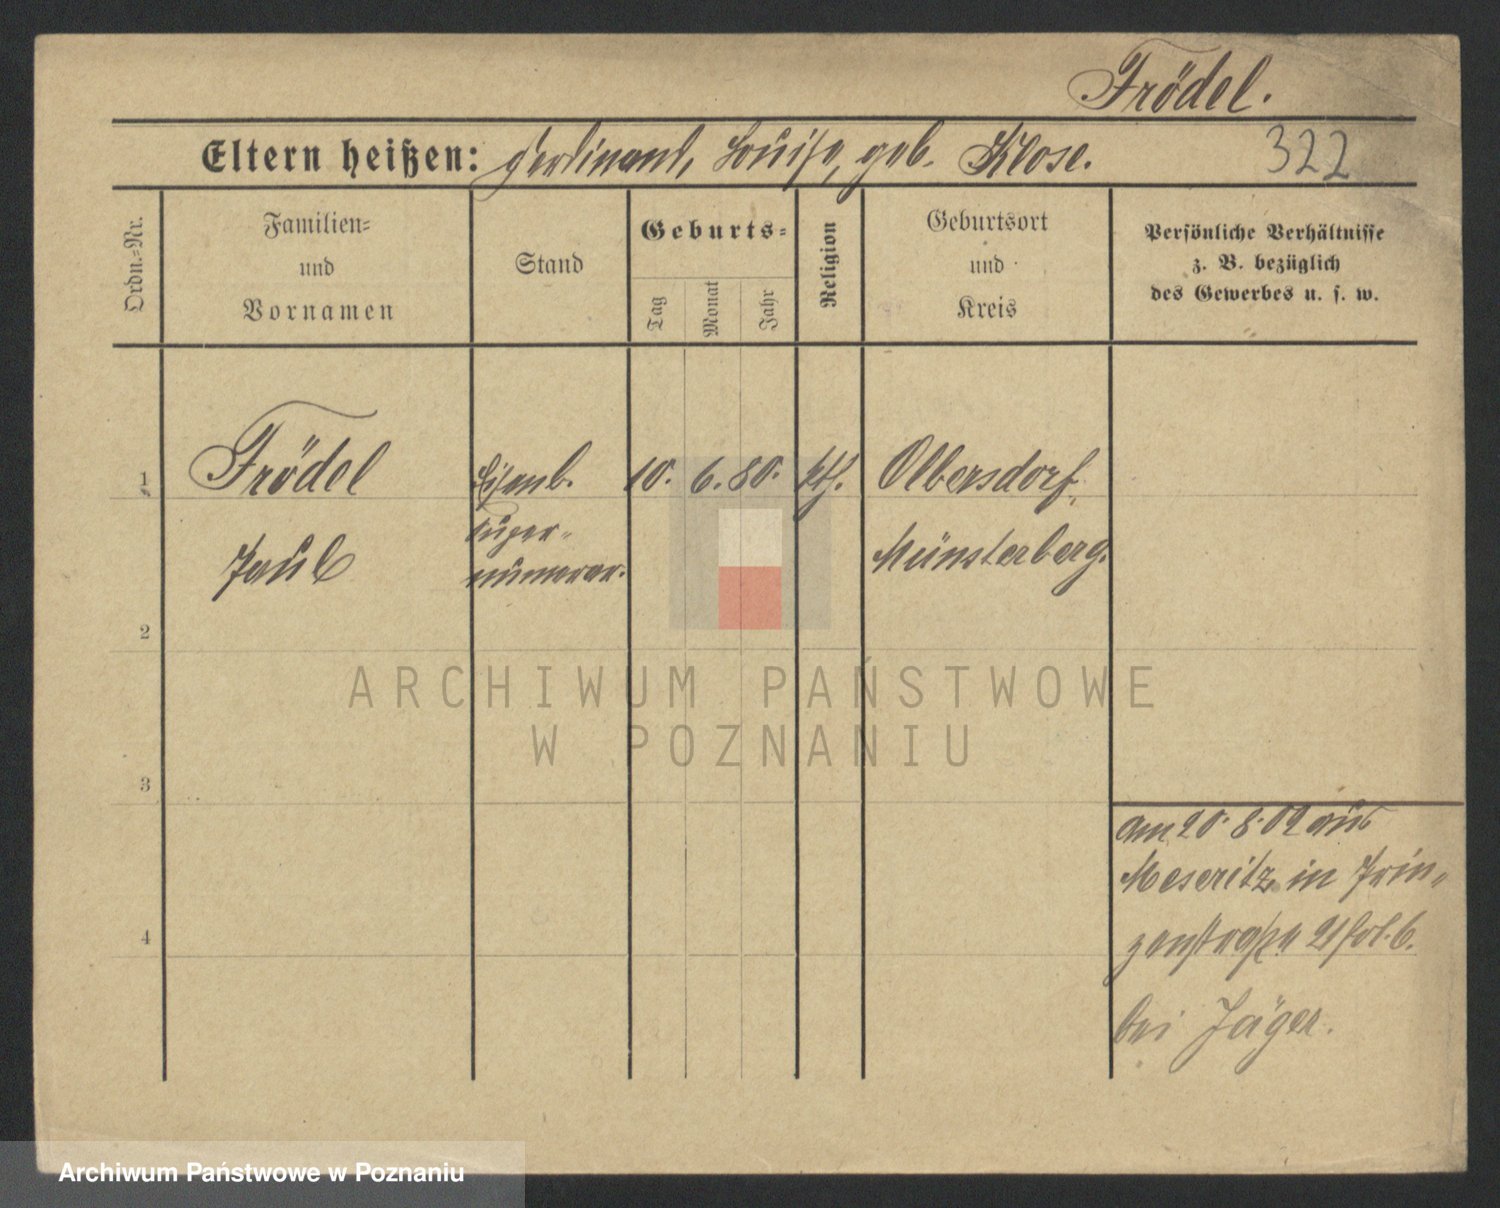 Frödel.
Eltern heißen: Ferdinand, Louise, geb. Klose. 322
Ordn.-Nr.
Familien-
und
Vornamen
Stand
Geburts-
Tag
Monat
Jahr
Religion
Geburtsort
und
Kreis
Persönliche Verhältnisse
z. B. bezüglich
des Gewerbes u. s. w.
1 Frödel Eisenb. 10. 6. 80. kth. Olbersdorf,
super-
Paul numerar. Münsterberg.
2
ARCHIWUM PAŃSTWOWE
W POZNANIU
3
am 20. 8. 02 aus
Meseritz in Prin-
4
zenstraße
bei Jäger.
Archiwum Państwowe w Poznaniu